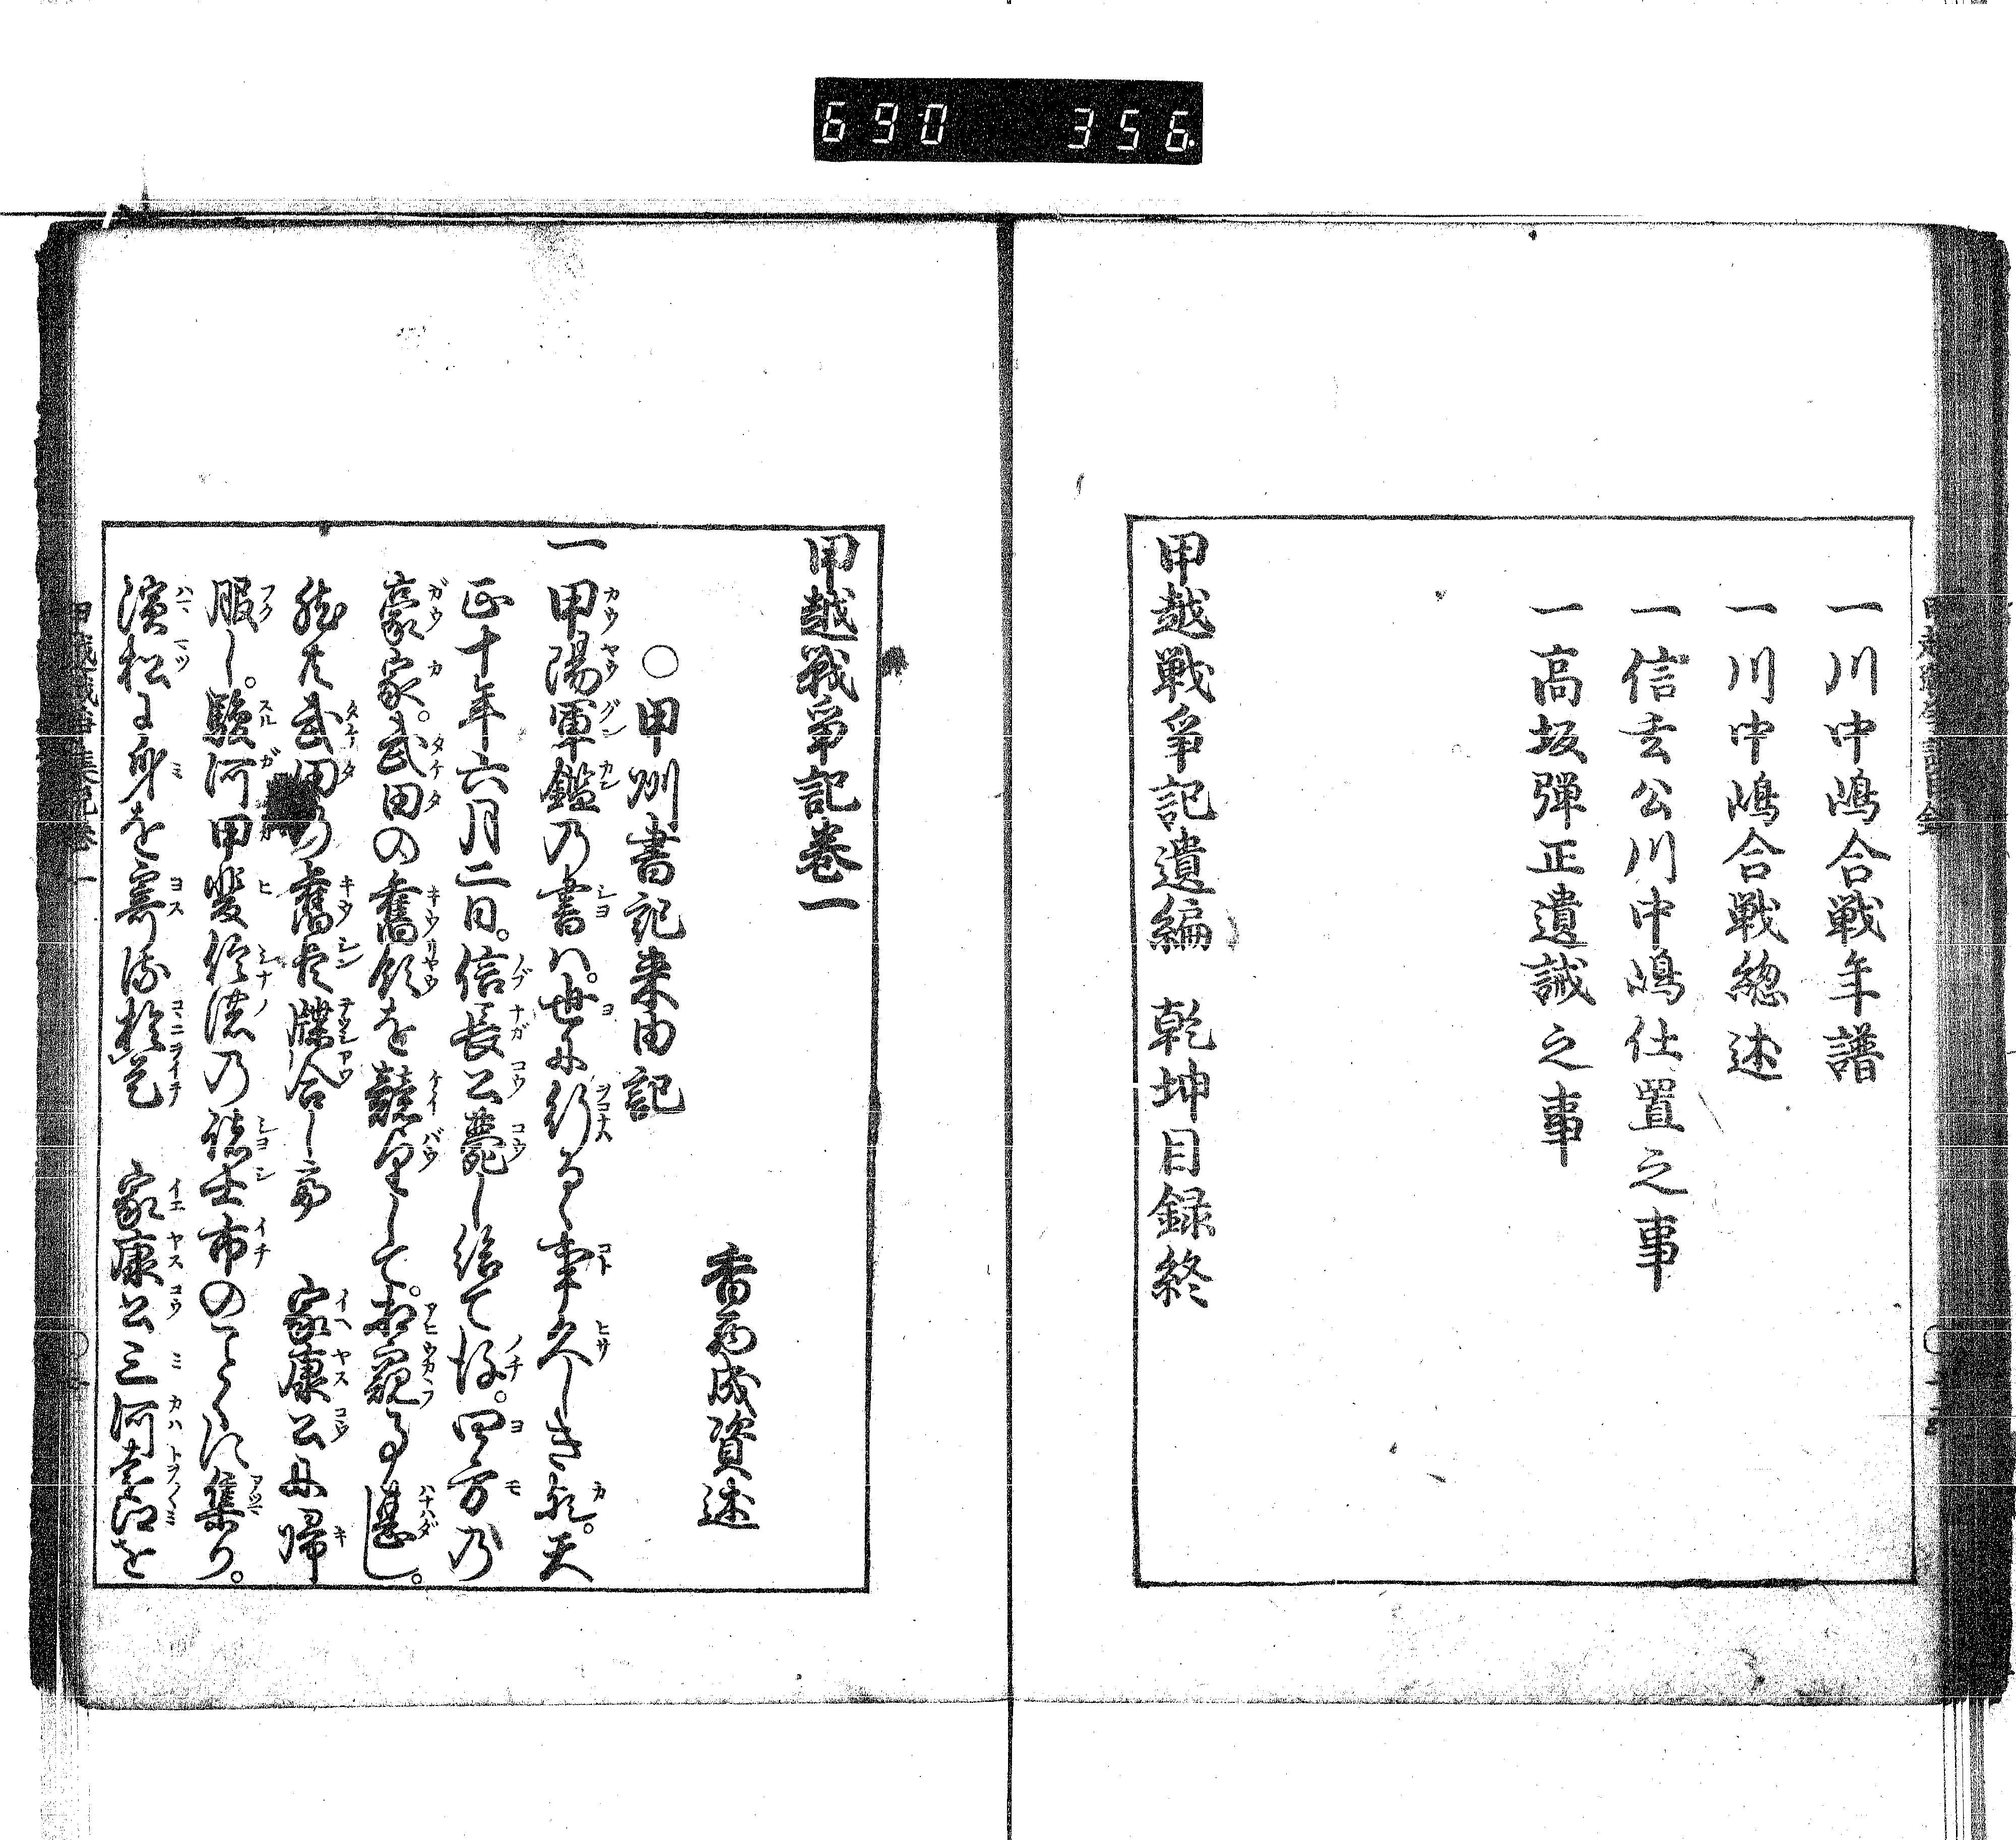 690 356
一川中嶋合戦年譜
一川中嶋合戦總述
一信玄公川中嶋仕置之事
一高坂弾正遺誡之事
甲越戦爭記遺編 乾坤目録終
甲越戦爭記巻一
香西成資述
○甲州書記来由記
一甲陽軍鑑乃書ハ。世に行るゝ事久しき歟。天
正十年六月二日。信長公薨し給て後。四方乃
豪家。武田の舊領を競望して。相窺る事甚し。
然共武田の舊臣牒合し而 家康公に帰
服し。駿河甲斐信濃乃諸士市のことくに集り。
濱松に身を寄流於是 家康公三河遠江を